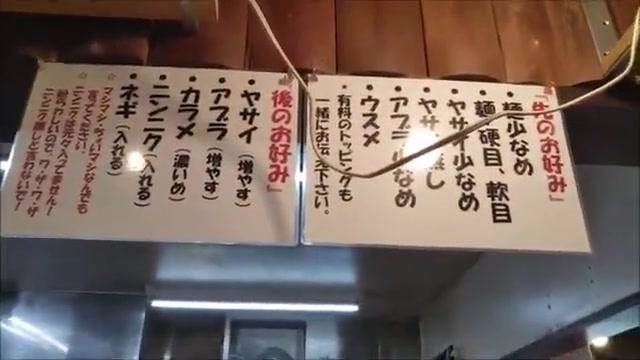 『先のお好み』
• 麺少なめ
• 麺、硬目、軟目
• ヤサイ少なめ
• ヤサイ無し
• アブラ少なめ
• ウスメ
• 有料のトッピングも
一緒にお伝え下さい。
『後のお好み』
• ヤサイ（増やす）
• アブラ（増やす）
• カラメ（濃いめ）
• ニンニク（入れる）
• ネギ（入れる）
☆ マシマシ・ちょいマシなんでも
言ってください。
☆ ニンニクは元々入ってません！